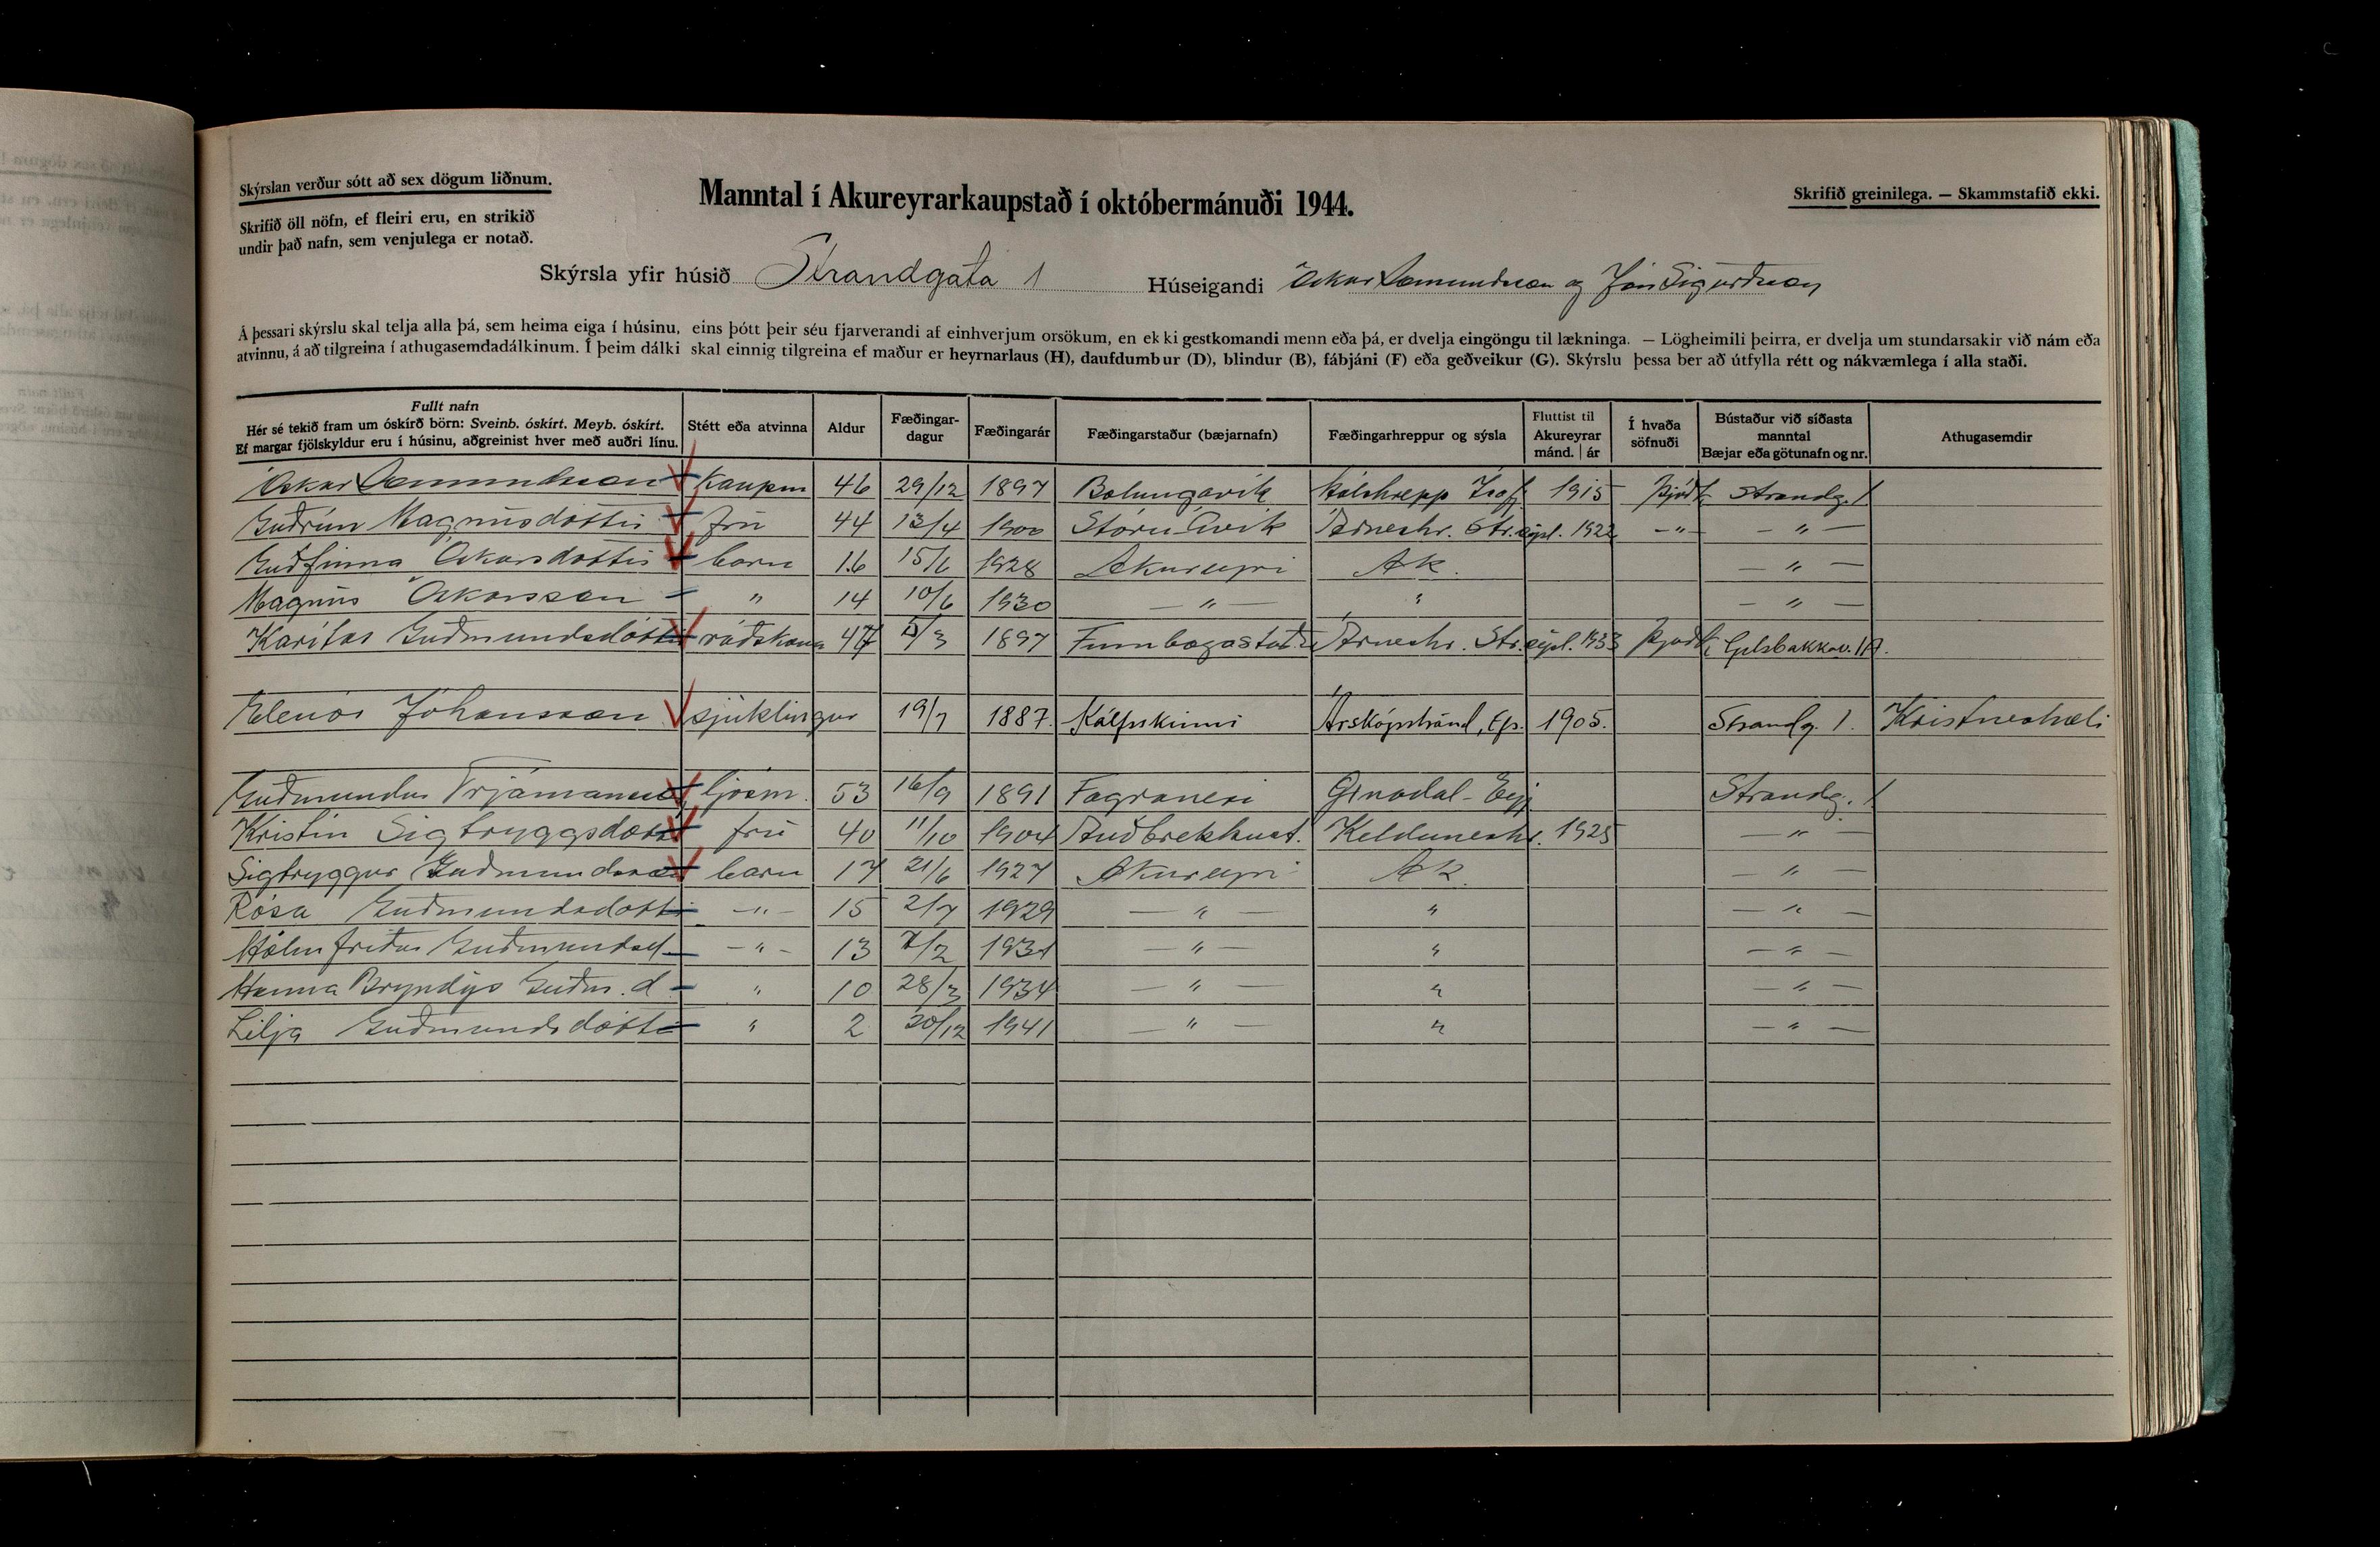 Skýrslan verður sótt að sex dögum liðnum.
Skrifið öll nöfn, ef fleiri eru, en strikið
undir það nafn, sem venjulega er notað.
Manntal í Akureyrarkaupstað í októbermánuði 1944.
Skrifið greinilega. — Skammstafið ekki.
Skýrsla yfir húsið Strandgata 1 Húseigandi Óskar Sæmundsson og Jón Sigurðsson
Á þessari skýrslu skal telja alla þá, sem heima eiga í húsinu, eins þótt þeir séu fjarverandi af einhverjum orsökum, en ekki gestkomandi menn eða þá, er dvelja eingöngu til lækninga. — Lögheimili þeirra, er dvelja um stundarsakir við nám eða
atvinnu, á að tilgreina í athugasemdadálkinum. Í þeim dálki skal einnig tilgreina ef maður er heyrnarlaus (H), daufdumbur (D), blindur (B), fábjáni (F) eða geðveikur (G). Skýrslu þessa ber að útfylla rétt og nákvæmlega í alla staði.
Fullt nafn
Hér sé tekið fram um óskírð börn: Sveinb. óskírt. Meyb. óskírt.
Ef margar fjölskyldur eru í húsinu, aðgreinist hver með auðri línu.
Stétt eða atvinna
Aldur
Fæðingar-
dagur
Fæðingarár
Fæðingarstaður (bæjarnafn)
Fæðingarhreppur og sýsla
Fluttist til
Akureyrar
mánd. | ár
Í hvaða
söfnuði
Bústaður við síðasta
manntal
Bæjar eða götunafn og nr.
Athugasemdir
Óskar Sæmundsson kaupm 46 29/12 1897 Bolungavík Hólshrepp Ísaf. 1915 Þjóðk Strandg. 1
Guðrún Magnúsdóttir frú 44 13/4 1900 Stóru Ávík Árneshr. Str.sýsl. 1922 -"- - " -
Guðfinna Óskarsdóttir barn 16 15/6 1928 Akureyri Ak. - " -
Magnús Óskarsson " 14 10/6 1930 - " - " - " -
Karítas Guðmundsdóttir ráðskona 47 /3 1897 Finnbogastöðu Árneshr. Str.sýsl. 1933 Þjóðk Gilsbakkav. 1A.
Elenór Jóhansson sjúklingur 19/7 1887. Kálfskinni Árskógströnd, Ef. 1905. Strandg. 1. Kristneshæli
Guðmundur Trjámannss. ljósm. 53 16/9 1891 Fagranesi Öxnadal - Eyj Strandg. 1
Kristín Sigtryggsdóttir frú 40 11/10 1904 Auðbrekkuat. Keldunesh. 1925 - " -
Sigtryggur Guðmundsson barn 17 21/6 1927 Akureyri Ak. - " -
Rósa Guðmundsdóttir -"- 15 2/7 1929 - " - " - " -
Hólmfríður Guðmundsd -"- 13 7/2 1931 - " - " - " -
Hanna Bryndís Guðm.d " 10 28/3 1934 - " - " - " -
Lilja Guðmundsdóttir " 2 20/12 1941 - " - " - " -